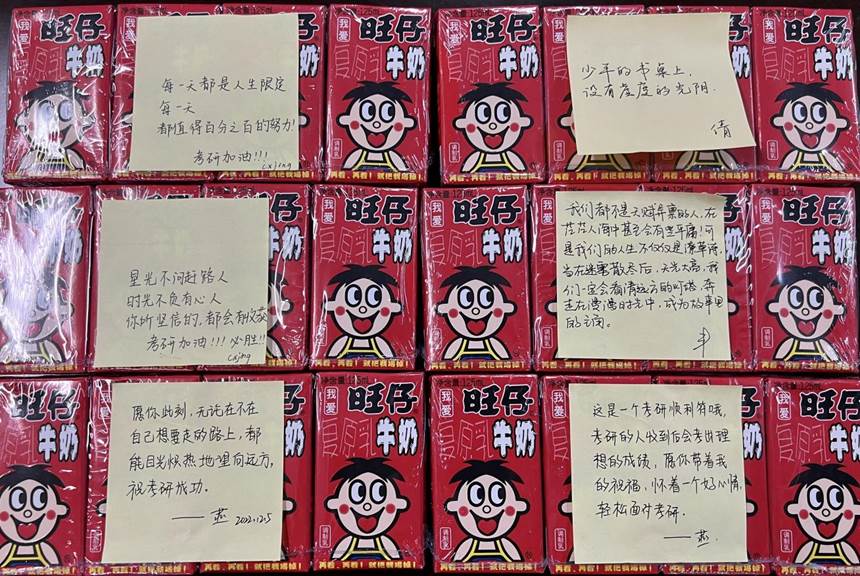 净含量:125mL
我爱
旺仔
牛奶
调制乳
再看,再看!就把你喝掉!
每一天都是人生限定
每一天
都值得百分之百的努力!
考研加油!!!
cxjing
少年的书桌上,
没有虚度的光阴.
倩
星光不问赶路人
时光不负有心人
你所坚信的,都会有收获
考研加油!!! 必胜!!
cxjing
我们都不是天赋异禀的人,在
茫茫人海中甚至会有些平庸!可
是我们的人生不仅仅是潦草诗,
当在迷雾散尽后,天光大亮,我
们一定会看清远方的灯塔,奔
走在漫漫时光中,成为故事里
的主角。
愿你此刻,无论在不在
自己想要走的路上,都
能目光炽热地望向远方,
祝考研成功.
——燕 2022.12.5
这是一个考研顺利符哦,
考研的人收到后会考出理
想的成绩,愿你带着我
的祝福,怀着一个好心情,
轻松面对考研.
——燕.